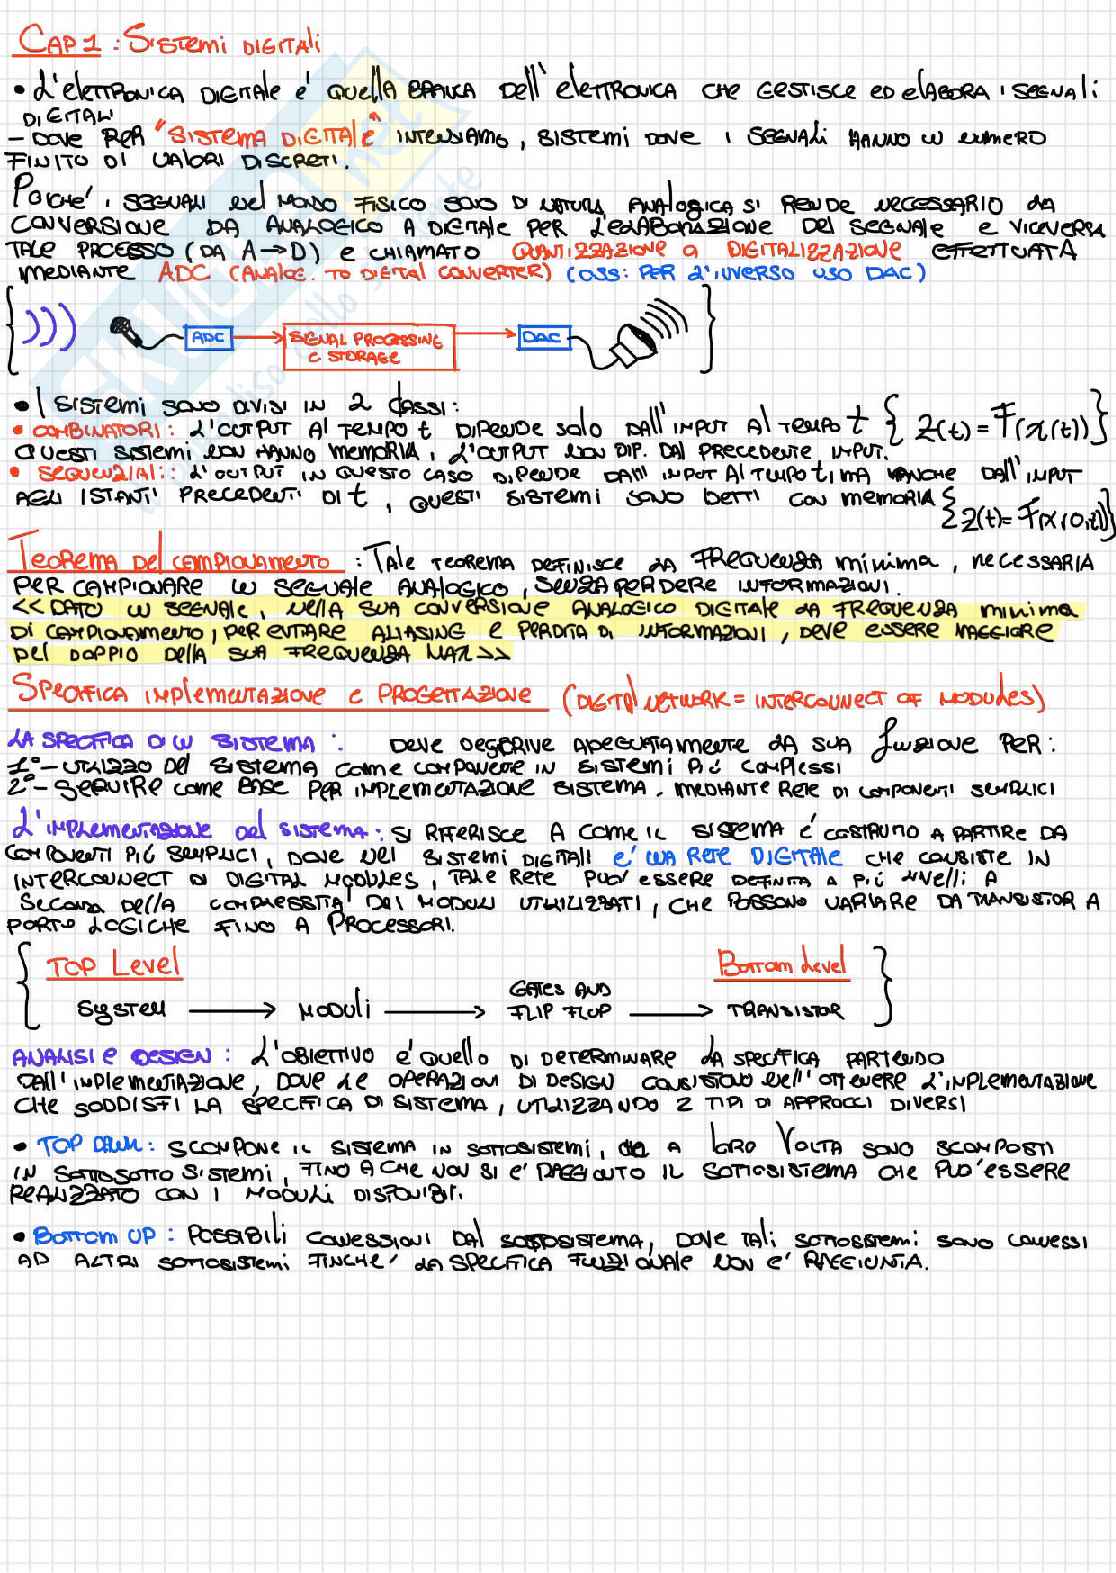 CAP 1 : SISTEMI DIGITALI
• L'ELETTRONICA DIGITALE E' QUELLA BRANCA DELL'ELETTRONICA CHE GESTISCE ED ELABORA I SEGNALI
DIGITALI
- DOVE PER "SISTEMA DIGITALE" INTENDIAMO, SISTEMI DOVE I SEGNALI HANNO UN NUMERO
FINITO DI VALORI DISCRETI.
POICHE' I SEGNALI NEL MONDO FISICO SONO DI NATURA ANALOGICA SI RENDE NECESSARIO LA
CONVERSIONE DA ANALOGICO A DIGITALE PER L'ELABORAZIONE DEL SEGNALE E VICEVERSA
TALE PROCESSO (DA A→D) E CHIAMATO QUANTIZZAZIONE O DIGITALIZZAZIONE EFFETTUATA
MEDIANTE ADC (ANALOG. TO DIGITAL CONVERTER) (OSS: PER L'INVERSO USO DAC)
ADC
SIGNAL PROCESSING
E STORAGE
DAC
• I SISTEMI SONO DIVISI IN 2 CLASSI:
• COMBINATORI: L'OUTPUT AL TEMPO t DIPENDE SOLO DALL'INPUT AL TEMPO t { Z(t) = F(x(t)) }
QUESTI SISTEMI NON HANNO MEMORIA, L'OUTPUT NON DIP. DAL PRECEDENTE INPUT.
• SEQUENZIALI: L'OUTPUT IN QUESTO CASO DIPENDE DALL'INPUT AL TEMPO t MA ANCHE DALL'INPUT
AGLI ISTANTI PRECEDENTI DI t, QUESTI SISTEMI SONO DETTI CON MEMORIA { Z(t) = F(x(0,t)) }
TEOREMA DEL CAMPIONAMENTO : TALE TEOREMA DEFINISCE LA FREQUENZA MINIMA, NECESSARIA
PER CAMPIONARE UN SEGNALE ANALOGICO, SENZA PERDERE INFORMAZIONI.
<< DATO UN SEGNALE, NELLA SUA CONVERSIONE ANALOGICO DIGITALE LA FREQUENZA MINIMA
DI CAMPIONAMENTO, PER EVITARE ALIASING E PERDITA DI INFORMAZIONI, DEVE ESSERE MAGGIORE
DEL DOPPIO DELLA SUA FREQUENZA MAX >>
SPECIFICA IMPLEMENTAZIONE E PROGETTAZIONE (DIGITAL NETWORK = INTERCONNECT OF MODULES)
LA SPECIFICA DI UN SISTEMA : DEVE DESCRIVE ADEGUATAMENTE LA SUA FUNZIONE PER:
1°- UTILIZZO DEL SISTEMA COME COMPONENTE IN SISTEMI PIÚ COMPLESSI
2°- SEGUIRE COME BASE PER IMPLEMENTAZIONE SISTEMA. MEDIANTE RETE DI COMPONENTI SEMPLICI
L'IMPLEMENTAZIONE DEL SISTEMA: SI RIFERISCE A COME IL SISTEMA E' COSTRUITO A PARTIRE DA
COMPONENTI PIÚ SEMPLICI, DOVE NEI SISTEMI DIGITALI E' UNA RETE DIGITALE CHE CONSISTE IN
INTERCONNECT DI DIGITAL MODULES, TALE RETE PUO' ESSERE DEFINITA A PIÚ LIVELLI A
SECONDA DELLA COMPLESSITA' DEI MODULI UTILIZZATI, CHE POSSONO VARIARE DA TRANSISTOR A
PORTE LOGICHE FINO A PROCESSORI.
TOP LEVEL
BOTTOM LEVEL
SYSTEM → MODULI → GATES AND FLIP FLOP → TRANSISTOR
ANALISI E DESIGN : L'OBIETTIVO E' QUELLO DI DETERMINARE LA SPECIFICA PARTENDO
DALL'IMPLEMENTAZIONE, DOVE LE OPERAZIONI DI DESIGN CONSISTONO NELL'OTTENERE L'IMPLEMENTAZIONE
CHE SODDISFI LA SPECIFICA DI SISTEMA, UTILIZZANDO 2 TIPI DI APPROCCI DIVERSI
• TOP DOWN : SCOMPONE IL SISTEMA IN SOTTOSISTEMI, A LORO VOLTA SONO SCOMPOSTI
IN SOTTOSOTTO SISTEMI, FINO A CHE NON SI E' RAGGIUNTO IL SOTTOSISTEMA CHE PUO' ESSERE
REALIZZATO CON I MODULI DISPONIBILI.
• BOTTOM UP : POSSIBILI CONNESSIONI DAL SOTTOSISTEMA, DOVE TALI SOTTOSISTEMI SONO CONNESSI
AD ALTRI SOTTOSISTEMI FINCHE' LA SPECIFICA FUNZIONALE NON E' RAGGIUNTA.